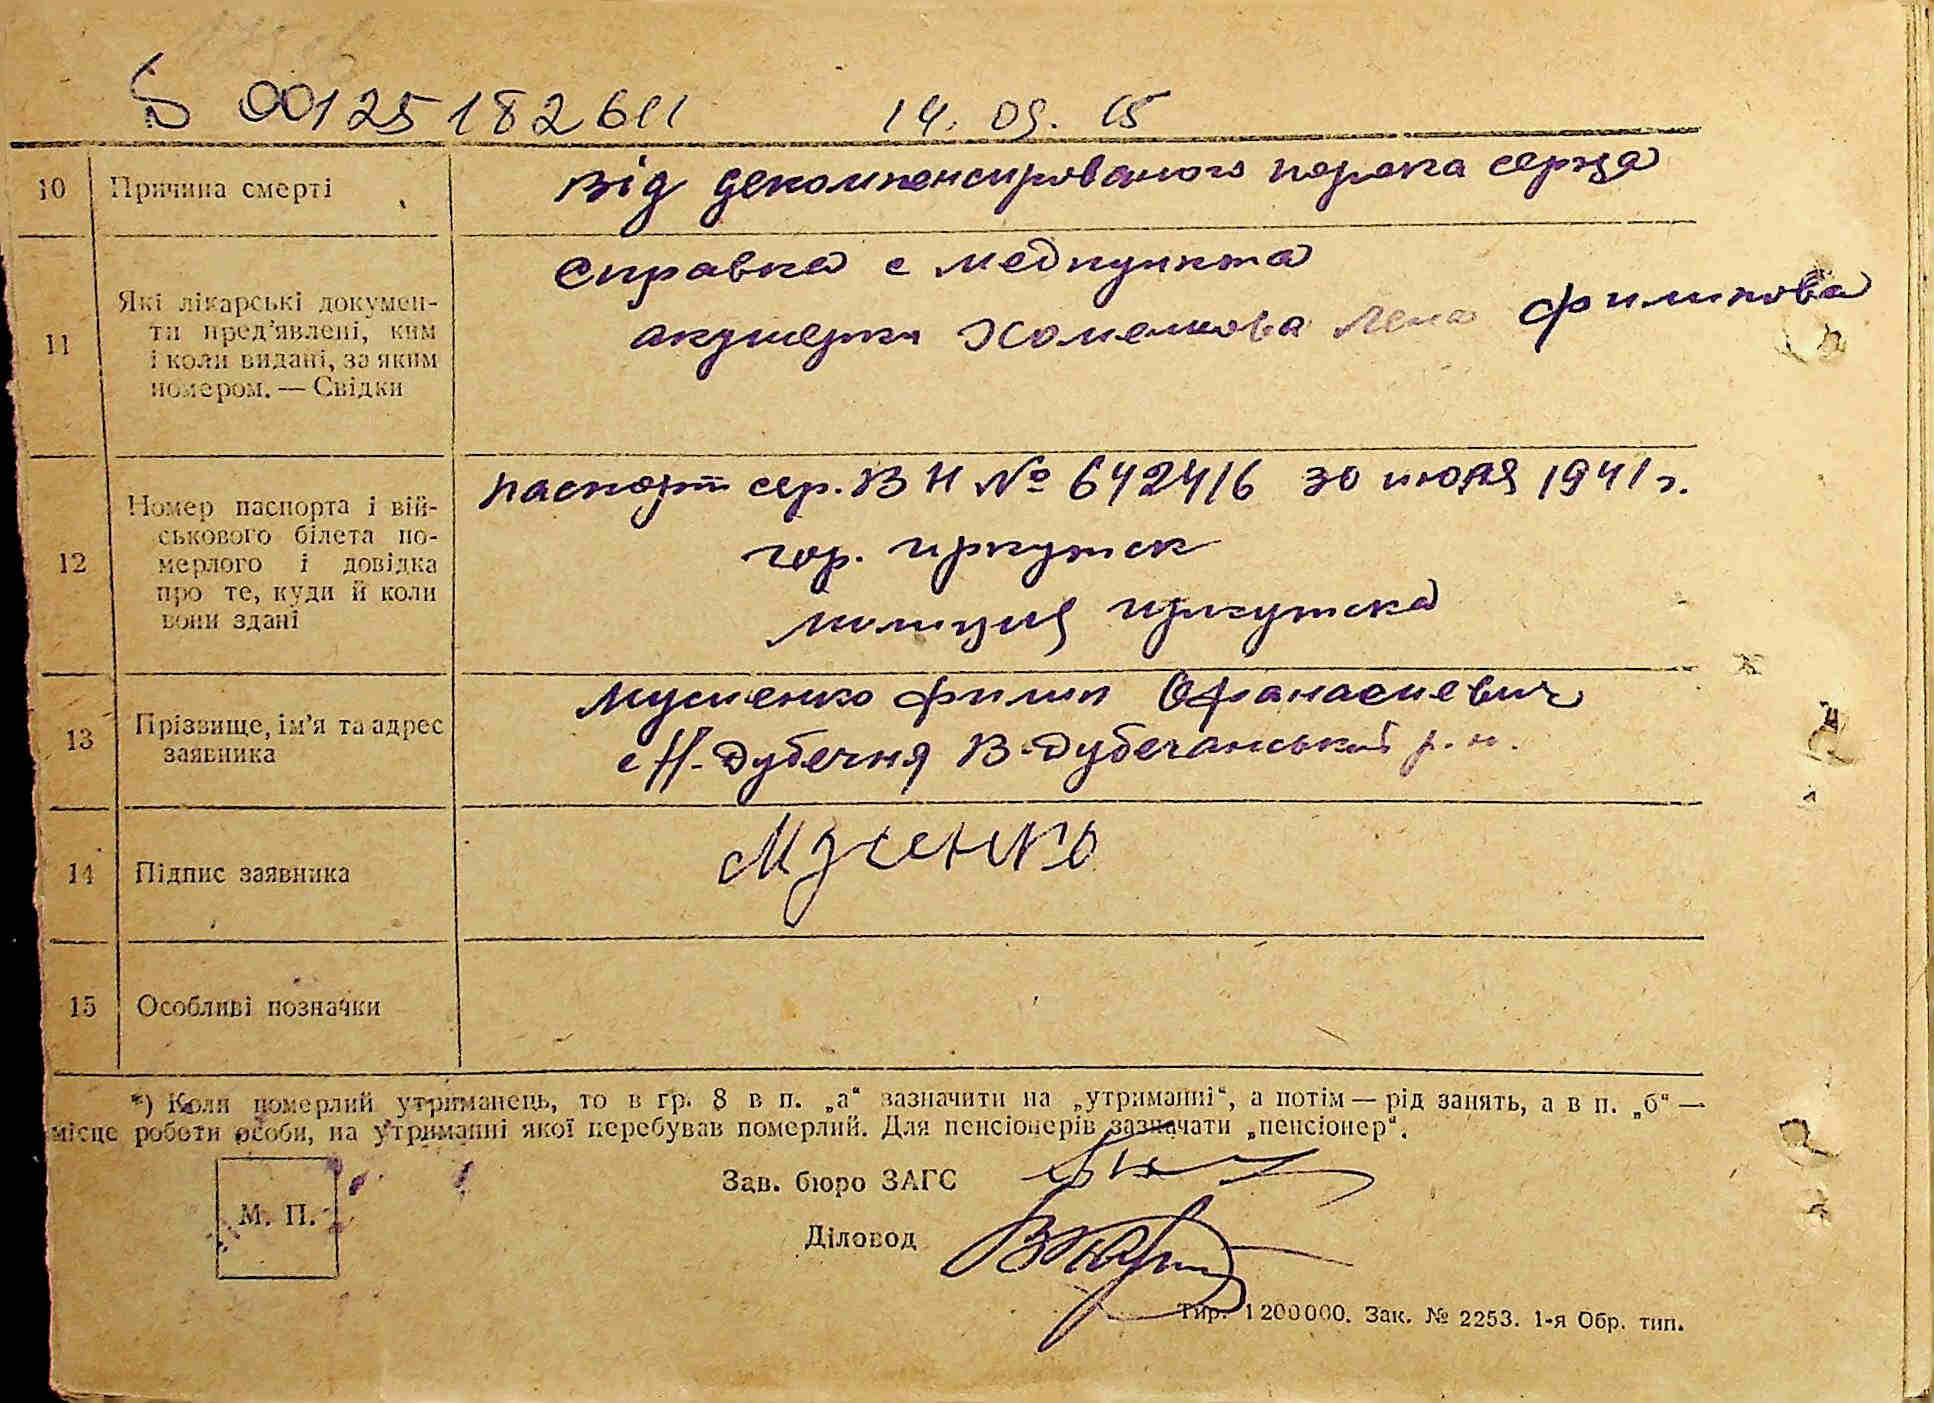 00125182611 14.09.15
10 Причина смерті від декомпенсированого порока серца
11 Які лікарські докумен-
ти пред’явлені, ким
і коли видані, за яким
номером. — Свідки
Справка с медпункта
акушерки Хоменкова Лена Филипова
12 Номер паспорта і вій-
ськового білета по-
мерлого і довідка
про те, куди й коли
вони здані
паспорт сер. ВН № 642416 30 июля 1941 г.
гор. иркутск
милиция иркутска
13 Прізвище, ім’я та адрес
заявника
Мусиенко Филип Офанасиевич
с Н-Дубечня В-Дубечанський р. н.
14 Підпис заявника Мусенко
15 Особливі позначки
*) Коли померлий утриманець, то в гр. 8 в п. „а“ зазначити на „утриманні“, а потім — рід занять, а в п. „б“ —
місце роботи особи, на утриманні якої перебував померлий. Для пенсіонерів зазначати „пенсіонер“.
Зав. бюро ЗАГС
М. П.
Діловод
Тир. 1200000. Зак. № 2253. 1-я Обр. тип.